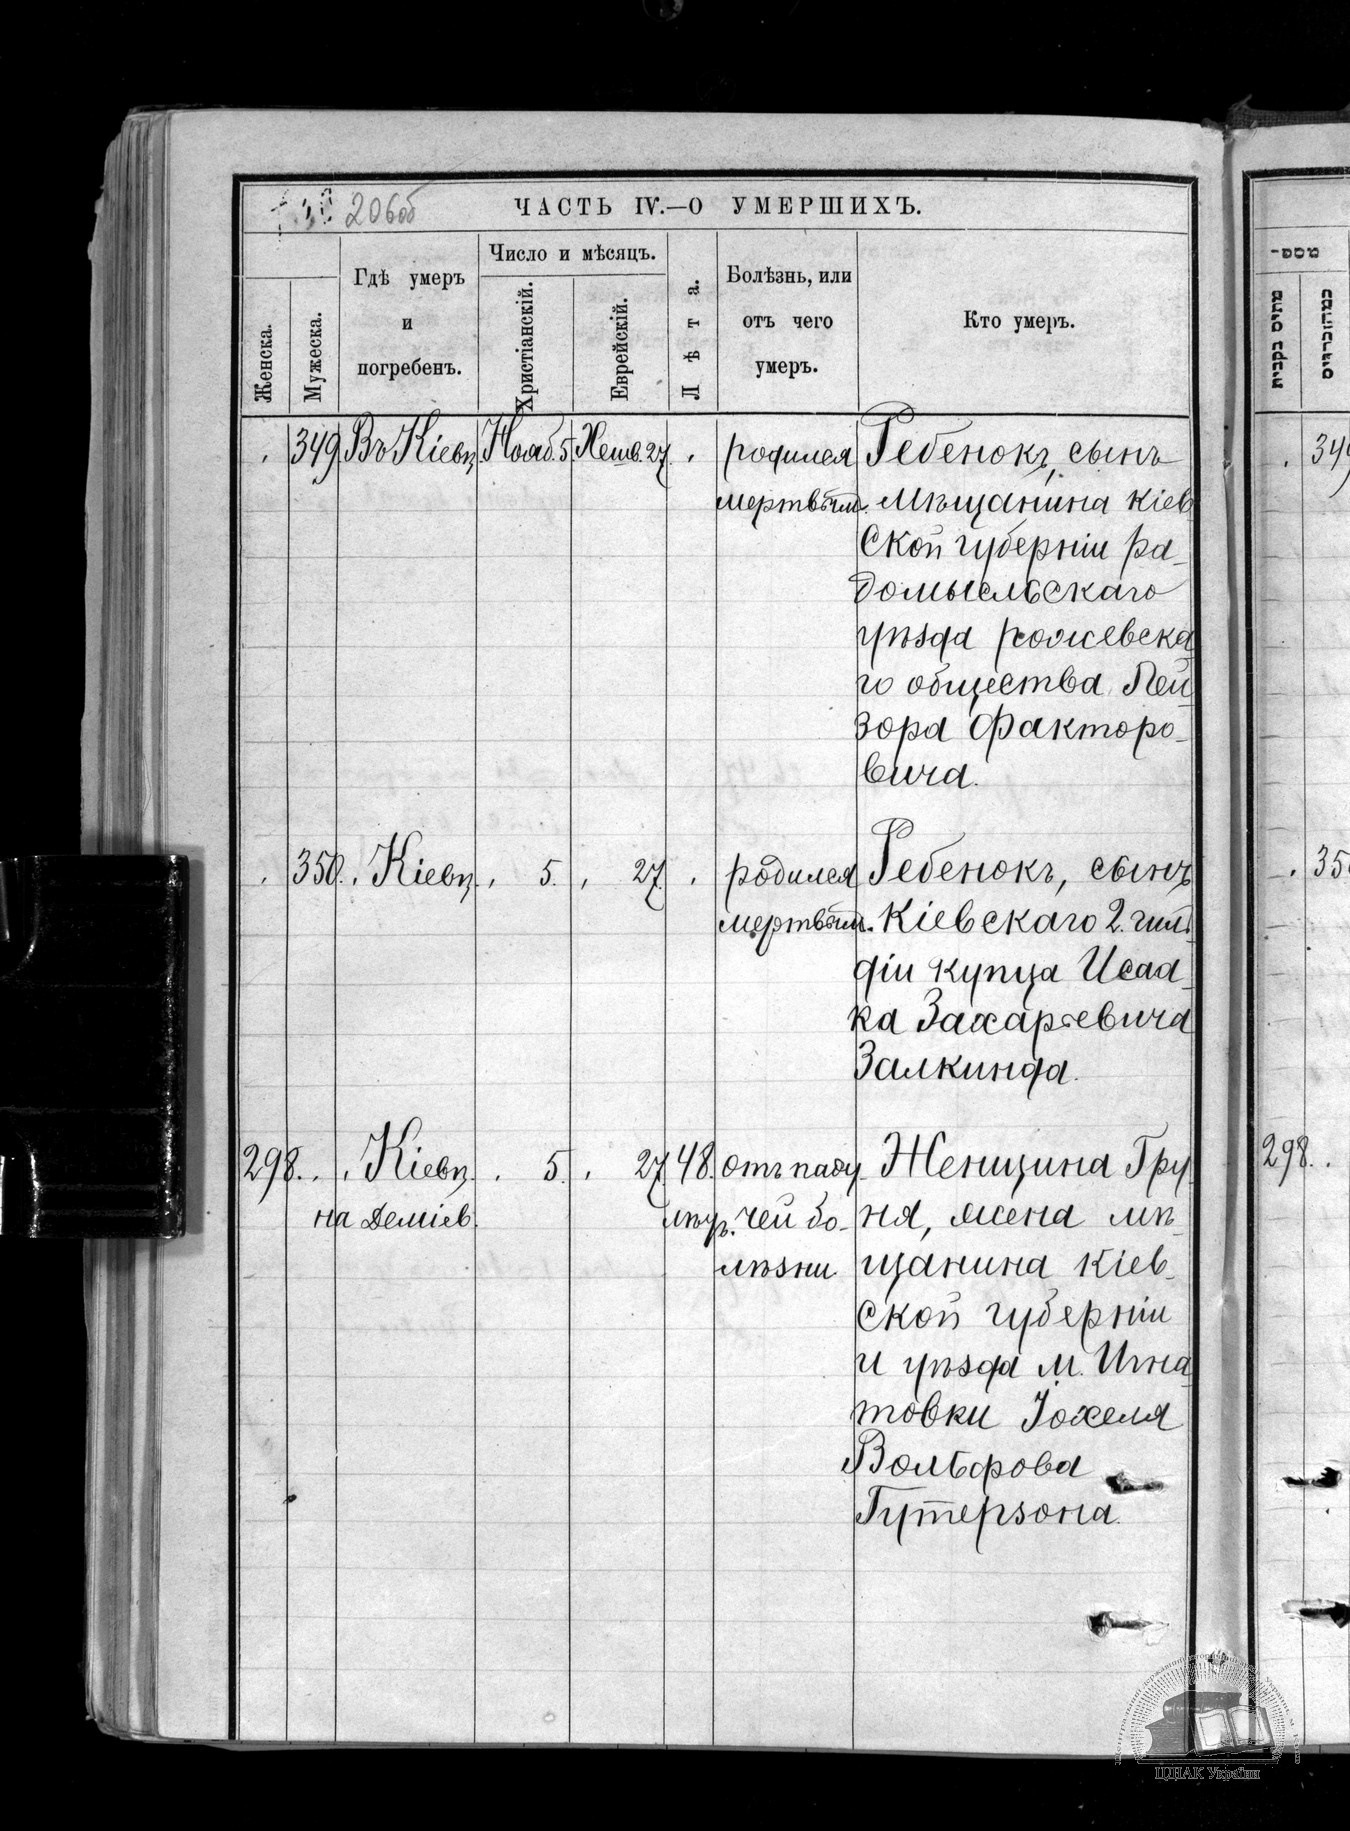 206об
ЧАСТЬ IV.—О УМЕРШИХЪ.
Женска.
Мужеска.
Гдѣ умеръ
и
погребенъ.
Число и мѣсяцъ.
Христіанскій.
Еврейскій.
Лѣта.
Болѣзнь, или
отъ чего
умеръ.
Кто умеръ.
349. Въ Кіевѣ. Нояб. 5. Хешв. 27. родился Ребенокъ, сынъ
мертвым. мѣщанина Кіев
ской губерніи Ра-
домысльскаго
уѣзда рожевска
го общества Лей
зора Факторо-
вича.
350. Кіевѣ. 5. 27. родился Ребенокъ, сынъ
мертвым. Кіевскаго 2. гиль
діи купца Исаа-
ка Захарьевича
Залкинда.
298. Кіевѣ. 5. 27. 48. отъ паду Женщина Гру
на Деміев. чей бо- ня, жена мѣ
лѣзни щанина Кіев-
ской губерніи
и уѣзда м. Игна
товки Іохеля
Вольфова
Гутерзона.
349
350
298.
ЦДІАК України